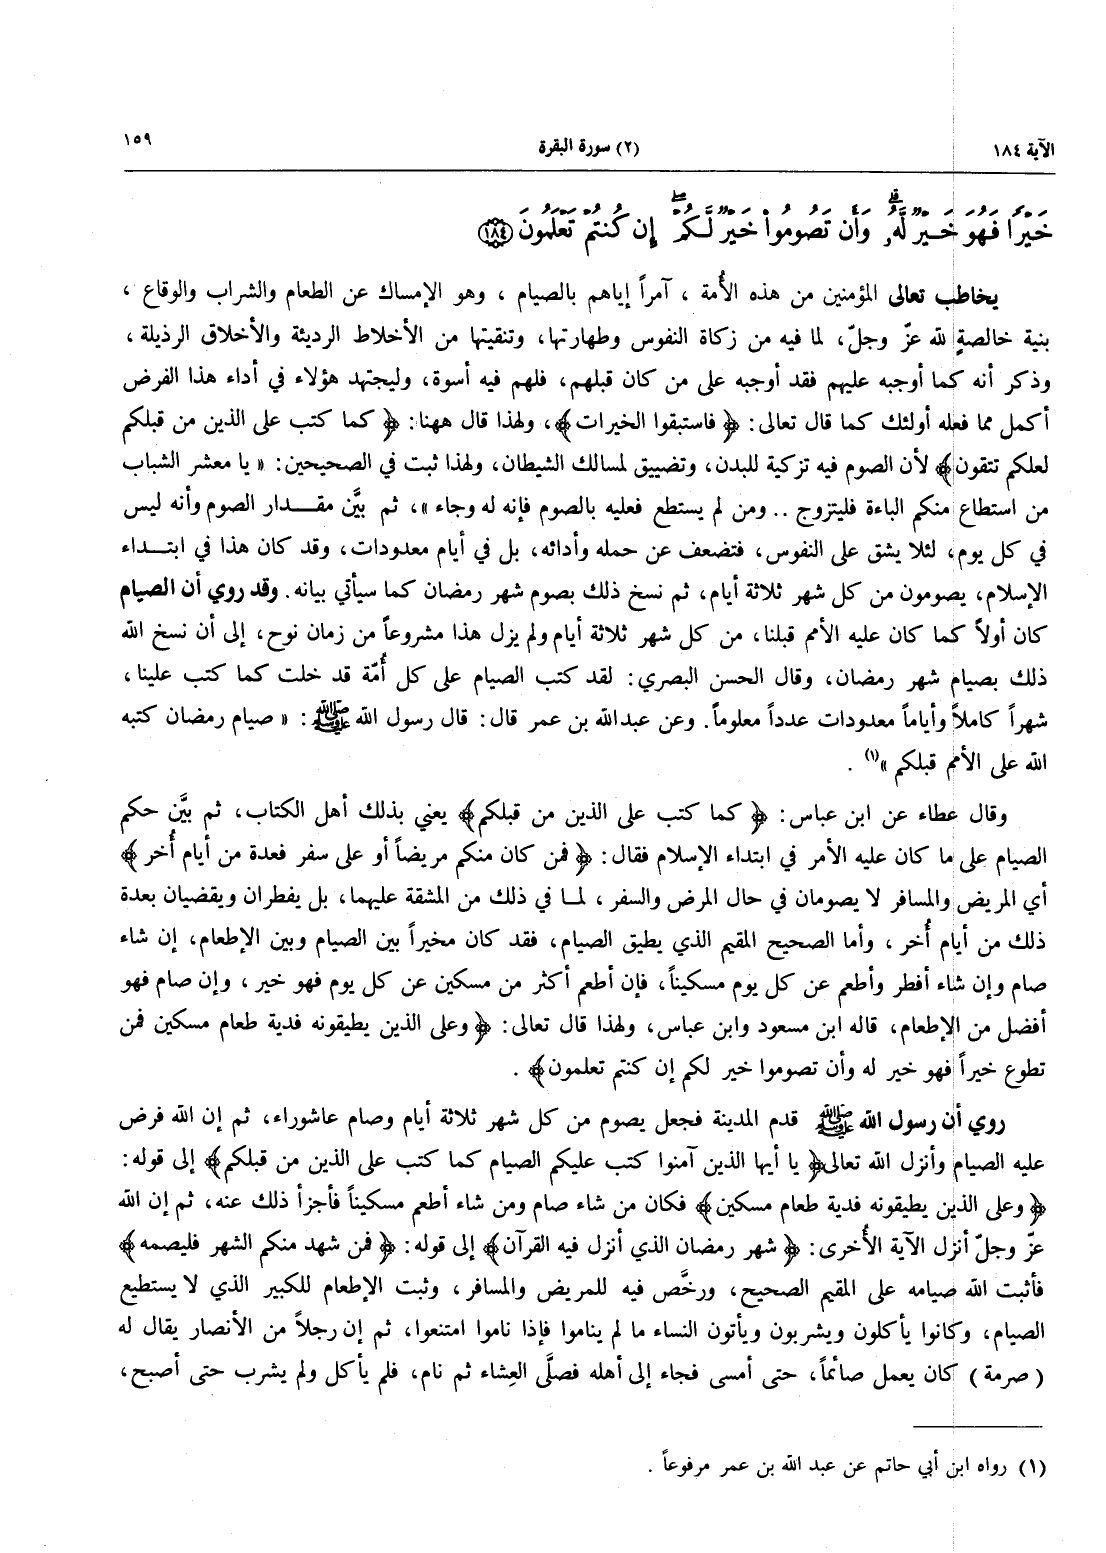 الآية ١٨٤
(٢) سورة البقرة
١٥٩
خَيْرًا فَهُوَ خَيْرٌ لَّهُۥ ۖ وَأَن تَصُومُوا۟ خَيْرٌ لَّكُمْ ۖ إِن كُنتُمْ تَعْلَمُونَ ١٨٤
يخاطب تعالى المؤمنين من هذه الأُمة ، آمراً إياهم بالصيام ، وهو الإمساك عن الطعام والشراب والوقاع ،
بنية خالصةٍ لله عزّ وجلّ، لما فيه من زكاة النفوس وطهارتها، وتنقيتها من الأخلاط الرديئة والأخلاق الرذيلة ،
وذكر أنه كما أوجبه عليهم فقد أوجبه على من كان قبلهم، فلهم فيه أسوة، وليجتهد هؤلاء في أداء هذا الفرض
أكمل مما فعله أولئك كما قال تعالى: ﴿ فاستبقوا الخيرات﴾، ولهذا قال ههنا: ﴿ كما كتب على الذين من قبلكم
لعلكم تتقون﴾ لأن الصوم فيه تزكية للبدن، وتضييق لمسالك الشيطان، ولهذا ثبت في الصحيحين: « يا معشر الشباب
من استطاع منكم الباءة فليتزوج .. ومن لم يستطع فعليه بالصوم فإنه له وجاء »، ثم بيَّن مقدار الصوم وأنه ليس
في كل يوم، لئلا يشق على النفوس، فتضعف عن حمله وأدائه، بل في أيام معدودات، وقد كان هذا في ابتداء
الإسلام، يصومون من كل شهر ثلاثة أيام، ثم نسخ ذلك بصوم شهر رمضان كما سيأتي بيانه. وقد روي أن الصيام
كان أولاً كما كان عليه الأمم قبلنا، من كل شهر ثلاثة أيام ولم يزل هذا مشروعاً من زمان نوح، إلى أن نسخ الله
ذلك بصيام شهر رمضان، وقال الحسن البصري: لقد كتب الصيام على كل أُمّة قد خلت كما كتب علينا ،
شهراً كاملاً وأياماً معدودات عدداً معلوماً. وعن عبدالله بن عمر قال: قال رسول الله ﷺ : « صيام رمضان كتبه
الله على الأمم قبلكم »(١) .
وقال عطاء عن ابن عباس: ﴿ كما كتب على الذين من قبلكم﴾ يعني بذلك أهل الكتاب، ثم بيَّن حكم
الصيام على ما كان عليه الأمر في ابتداء الإسلام فقال: ﴿ فمن كان منكم مريضاً أو على سفر فعدة من أيام أُخر ﴾
أي المريض والمسافر لا يصومان في حال المرض والسفر ، لما في ذلك من المشقة عليهما، بل يفطران ويقضيان بعدة
ذلك من أيام أُخر ، وأما الصحيح المقيم الذي يطيق الصيام، فقد كان مخيراً بين الصيام وبين الإطعام، إن شاء
صام وإن شاء أفطر وأطعم عن كل يوم مسكيناً، فإن أطعم أكثر من مسكين عن كل يوم فهو خير ، وإن صام فهو
أفضل من الإطعام، قاله ابن مسعود وابن عباس، ولهذا قال تعالى: ﴿ وعلى الذين يطيقونه فدية طعام مسكين فمن
تطوع خيراً فهو خير له وأن تصوموا خير لكم إن كنتم تعلمون﴾ .
روي أن رسول الله ﷺ قدم المدينة فجعل يصوم من كل شهر ثلاثة أيام وصام عاشوراء، ثم إن الله فرض
عليه الصيام وأنزل الله تعالى﴿ يا أيها الذين آمنوا كتب عليكم الصيام كما كتب على الذين من قبلكم﴾ إلى قوله:
﴿ وعلى الذين يطيقونه فدية طعام مسكين﴾ فكان من شاء صام ومن شاء أطعم مسكيناً فأجزأ ذلك عنه، ثم إن الله
عزّ وجلّ أنزل الآية الأُخرى: ﴿ شهر رمضان الذي أنزل فيه القرآن﴾ إلى قوله: ﴿ فمن شهد منكم الشهر فليصمه﴾
فأثبت الله صيامه على المقيم الصحيح، ورخَّص فيه للمريض والمسافر ، وثبت الإطعام للكبير الذي لا يستطيع
الصيام، وكانوا يأكلون ويشربون ويأتون النساء ما لم يناموا فإذا ناموا امتنعوا، ثم إن رجلاً من الأنصار يقال له
( صرمة ) كان يعمل صائماً، حتى أمسى فجاء إلى أهله فصلَّى العِشاء ثم نام، فلم يأكل ولم يشرب حتى أصبح،
(١) رواه ابن أبي حاتم عن عبد الله بن عمر مرفوعاً .